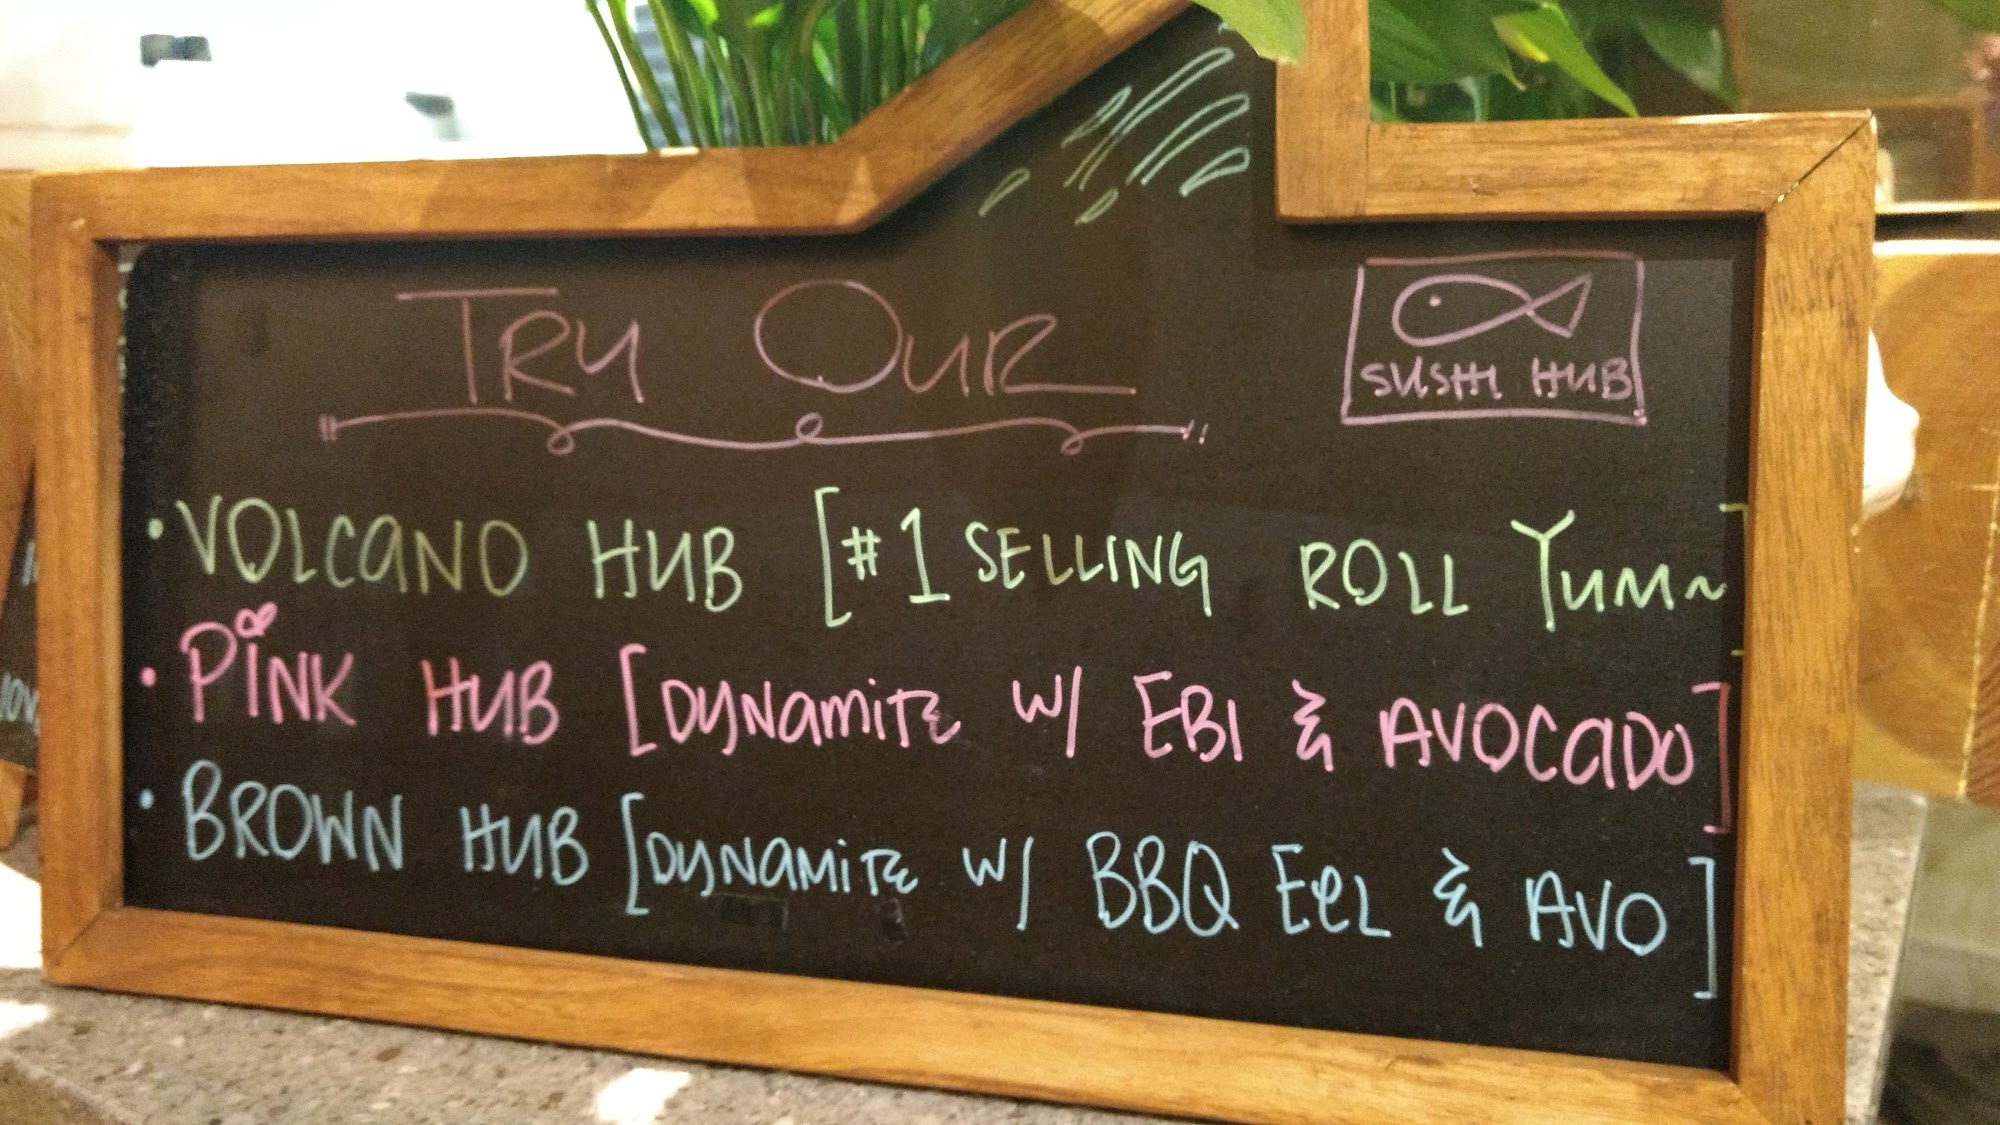 TRY OUR
SUSHI HUB
• VOLCANO HUB [#1 SELLING ROLL YUM~]
• PINK HUB [DYNAMITE W/ EBI & AVOCADO]
• BROWN HUB [DYNAMITE W/ BBQ EEL & AVO]